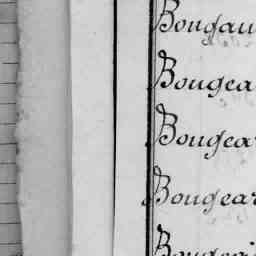 Bougau
Bougea
Bougear
Bougear